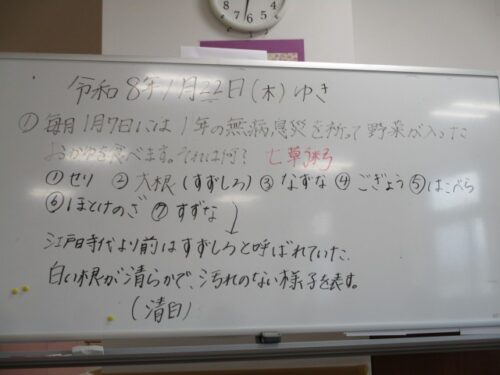 令和8年1月22日(木)ゆき
①毎月1月7日には1年の無病息災を祈って野菜が入った
おかゆを食べます。それは何? 七草粥
①せり ②大根(すずしろ)③なずな④ごぎょう⑤はこべら
⑥ほとけのざ ⑦すずな
江戸時代より前はすずしろと呼ばれていた
白い根が清らかで、汚れのない様子を表す。
(清白)